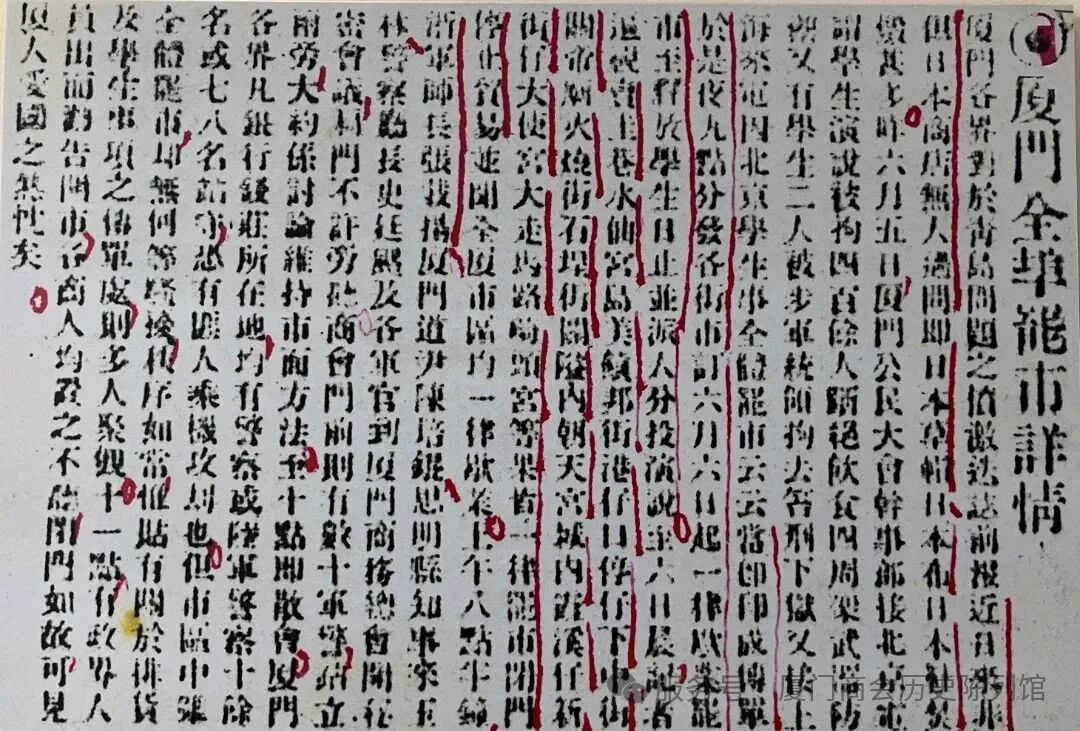 廈門全埠罷市詳情
廈門各界對於靑島問題之憤激迭誌前報近日來非
但日本商店無人過問即日本草帽日本布日本紗焚
燬甚多昨六月五日厦門公民大會幹事部接北京電
謂學生演說被拘四百餘人斷絕飲食四周架武器防
禦又有學生二人被步軍統領拘去笞刑下獄又接上
海來電因北京學生事全體罷市云云當即印成傳單
於是夜九點分發各街市訂六月六日起一律歇業罷
市至釋放學生日止並派人分投演說至六日晨記者
巡視賣圭巷水仙宮島美績邦街港仔口停仔下中街
關帝廟火燒街石埕街關隘內朝天宮城內霞溪仔新
街仔大使宮大走馬路崎頭宮等果皆一律罷市閉門
停止貿易並聞全厦市區均一律歇業上午八點半鐘
浙軍師長張載揚厦門道尹陳培錕思明縣知事來玉
林警察廳長史廷颺及各軍官到厦門商務總會開秘
密會議杜門不許旁聽商會門前則有數十軍警站立
兩旁大約係討論維持市面方法至十點即散會厦門
各界凡銀行錢莊所在地均有警察或陸軍警察十餘
名或七八名站守恐有匪人乘機攻刦也但市區中雖
全體罷市却無何等騷擾秩序如常惟貼有關於排貨
及學生事項之傳單處則多人聚觀十一點有政界人
員出而勸告開市各商人均置之不聽閉門如故可見
厦人愛國之熱忱矣
服务号 · 厦门商会历史陈列馆